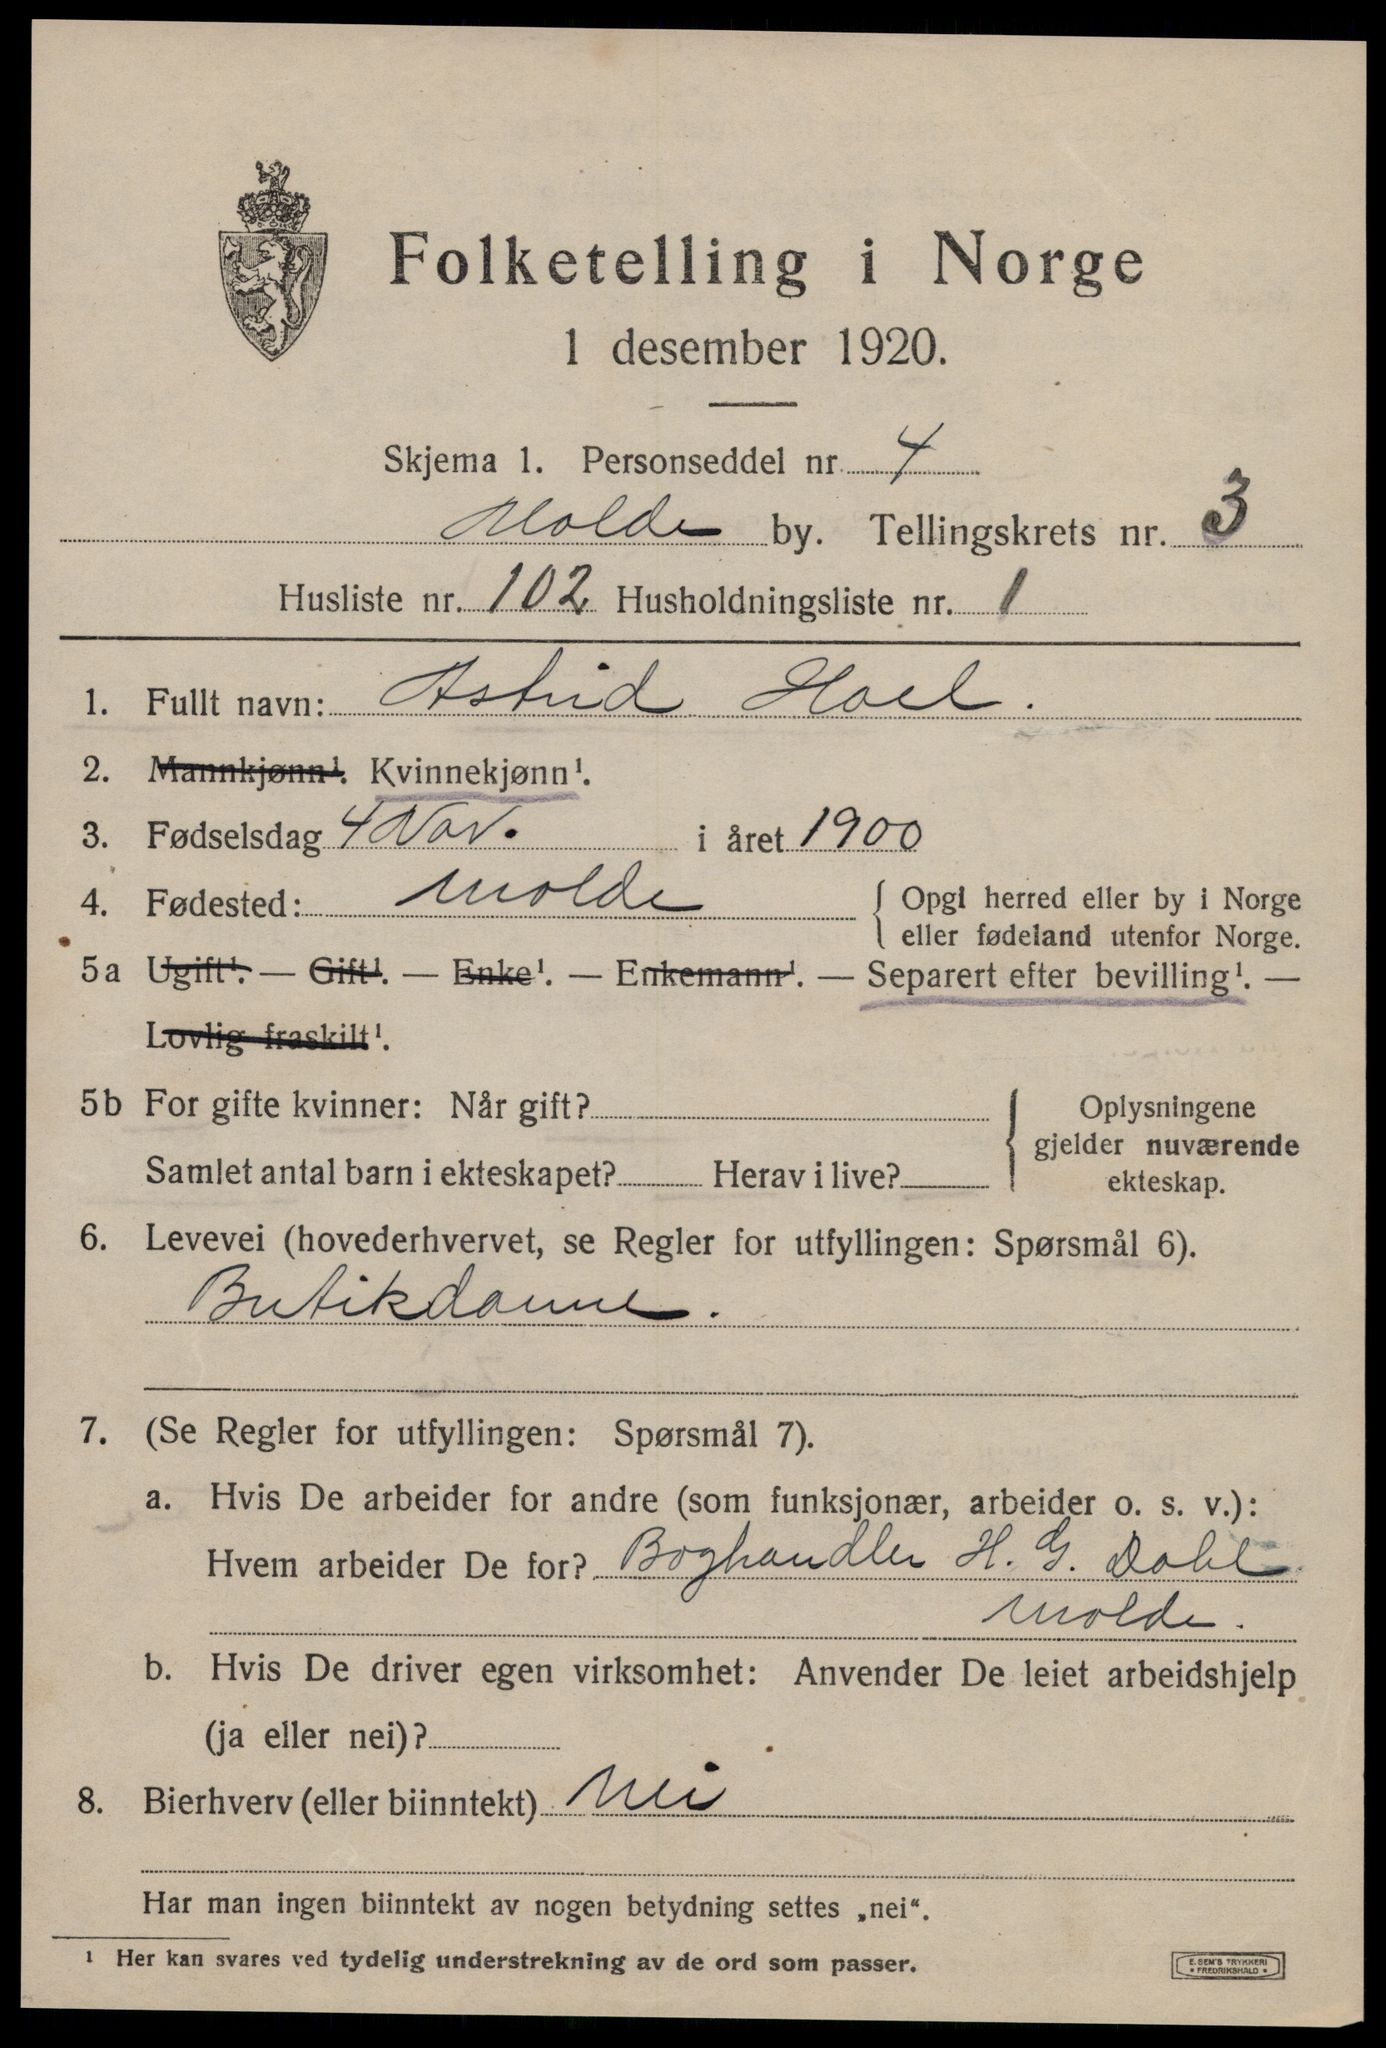 Folketelling i Norge
1 desember 1920.
Skjema 1. Personseddel nr 4
Molde by. Tellingskrets nr. 3
Husliste nr. 102 Husholdningsliste nr. 1
1. Fullt navn: Astrid Hoel.
2. Mannkjønn¹. Kvinnekjønn¹.
3. Fødselsdag 4 Nov. i året 1900
4. Fødested: Molde { Opgi herred eller by i Norge
eller fødeland utenfor Norge.
5a Ugift¹. — Gift¹. — Enke¹. — Enkemann¹. — Separert efter bevilling¹. —
Lovlig fraskilt¹.
5b For gifte kvinner: Når gift? { Oplysningene
gjelder nuværende
Samlet antal barn i ekteskapet? Herav i live? ekteskap.
6. Levevei (hovederhvervet, se Regler for utfyllingen: Spørsmål 6).
Butikdame.
7. (Se Regler for utfyllingen: Spørsmål 7).
a. Hvis De arbeider for andre (som funksjonær, arbeider o. s. v.):
Hvem arbeider De for? Boghandler H. G. Dahl
Molde.
b. Hvis De driver egen virksomhet: Anvender De leiet arbeidshjelp
(ja eller nei)?
8. Bierhverv (eller biinntekt) Nei
Har man ingen biinntekt av nogen betydning settes „nei“.
¹ Her kan svares ved tydelig understrekning av de ord som passer.
E. SEM'S TRYKKERI
• FREDRIKSHALD •